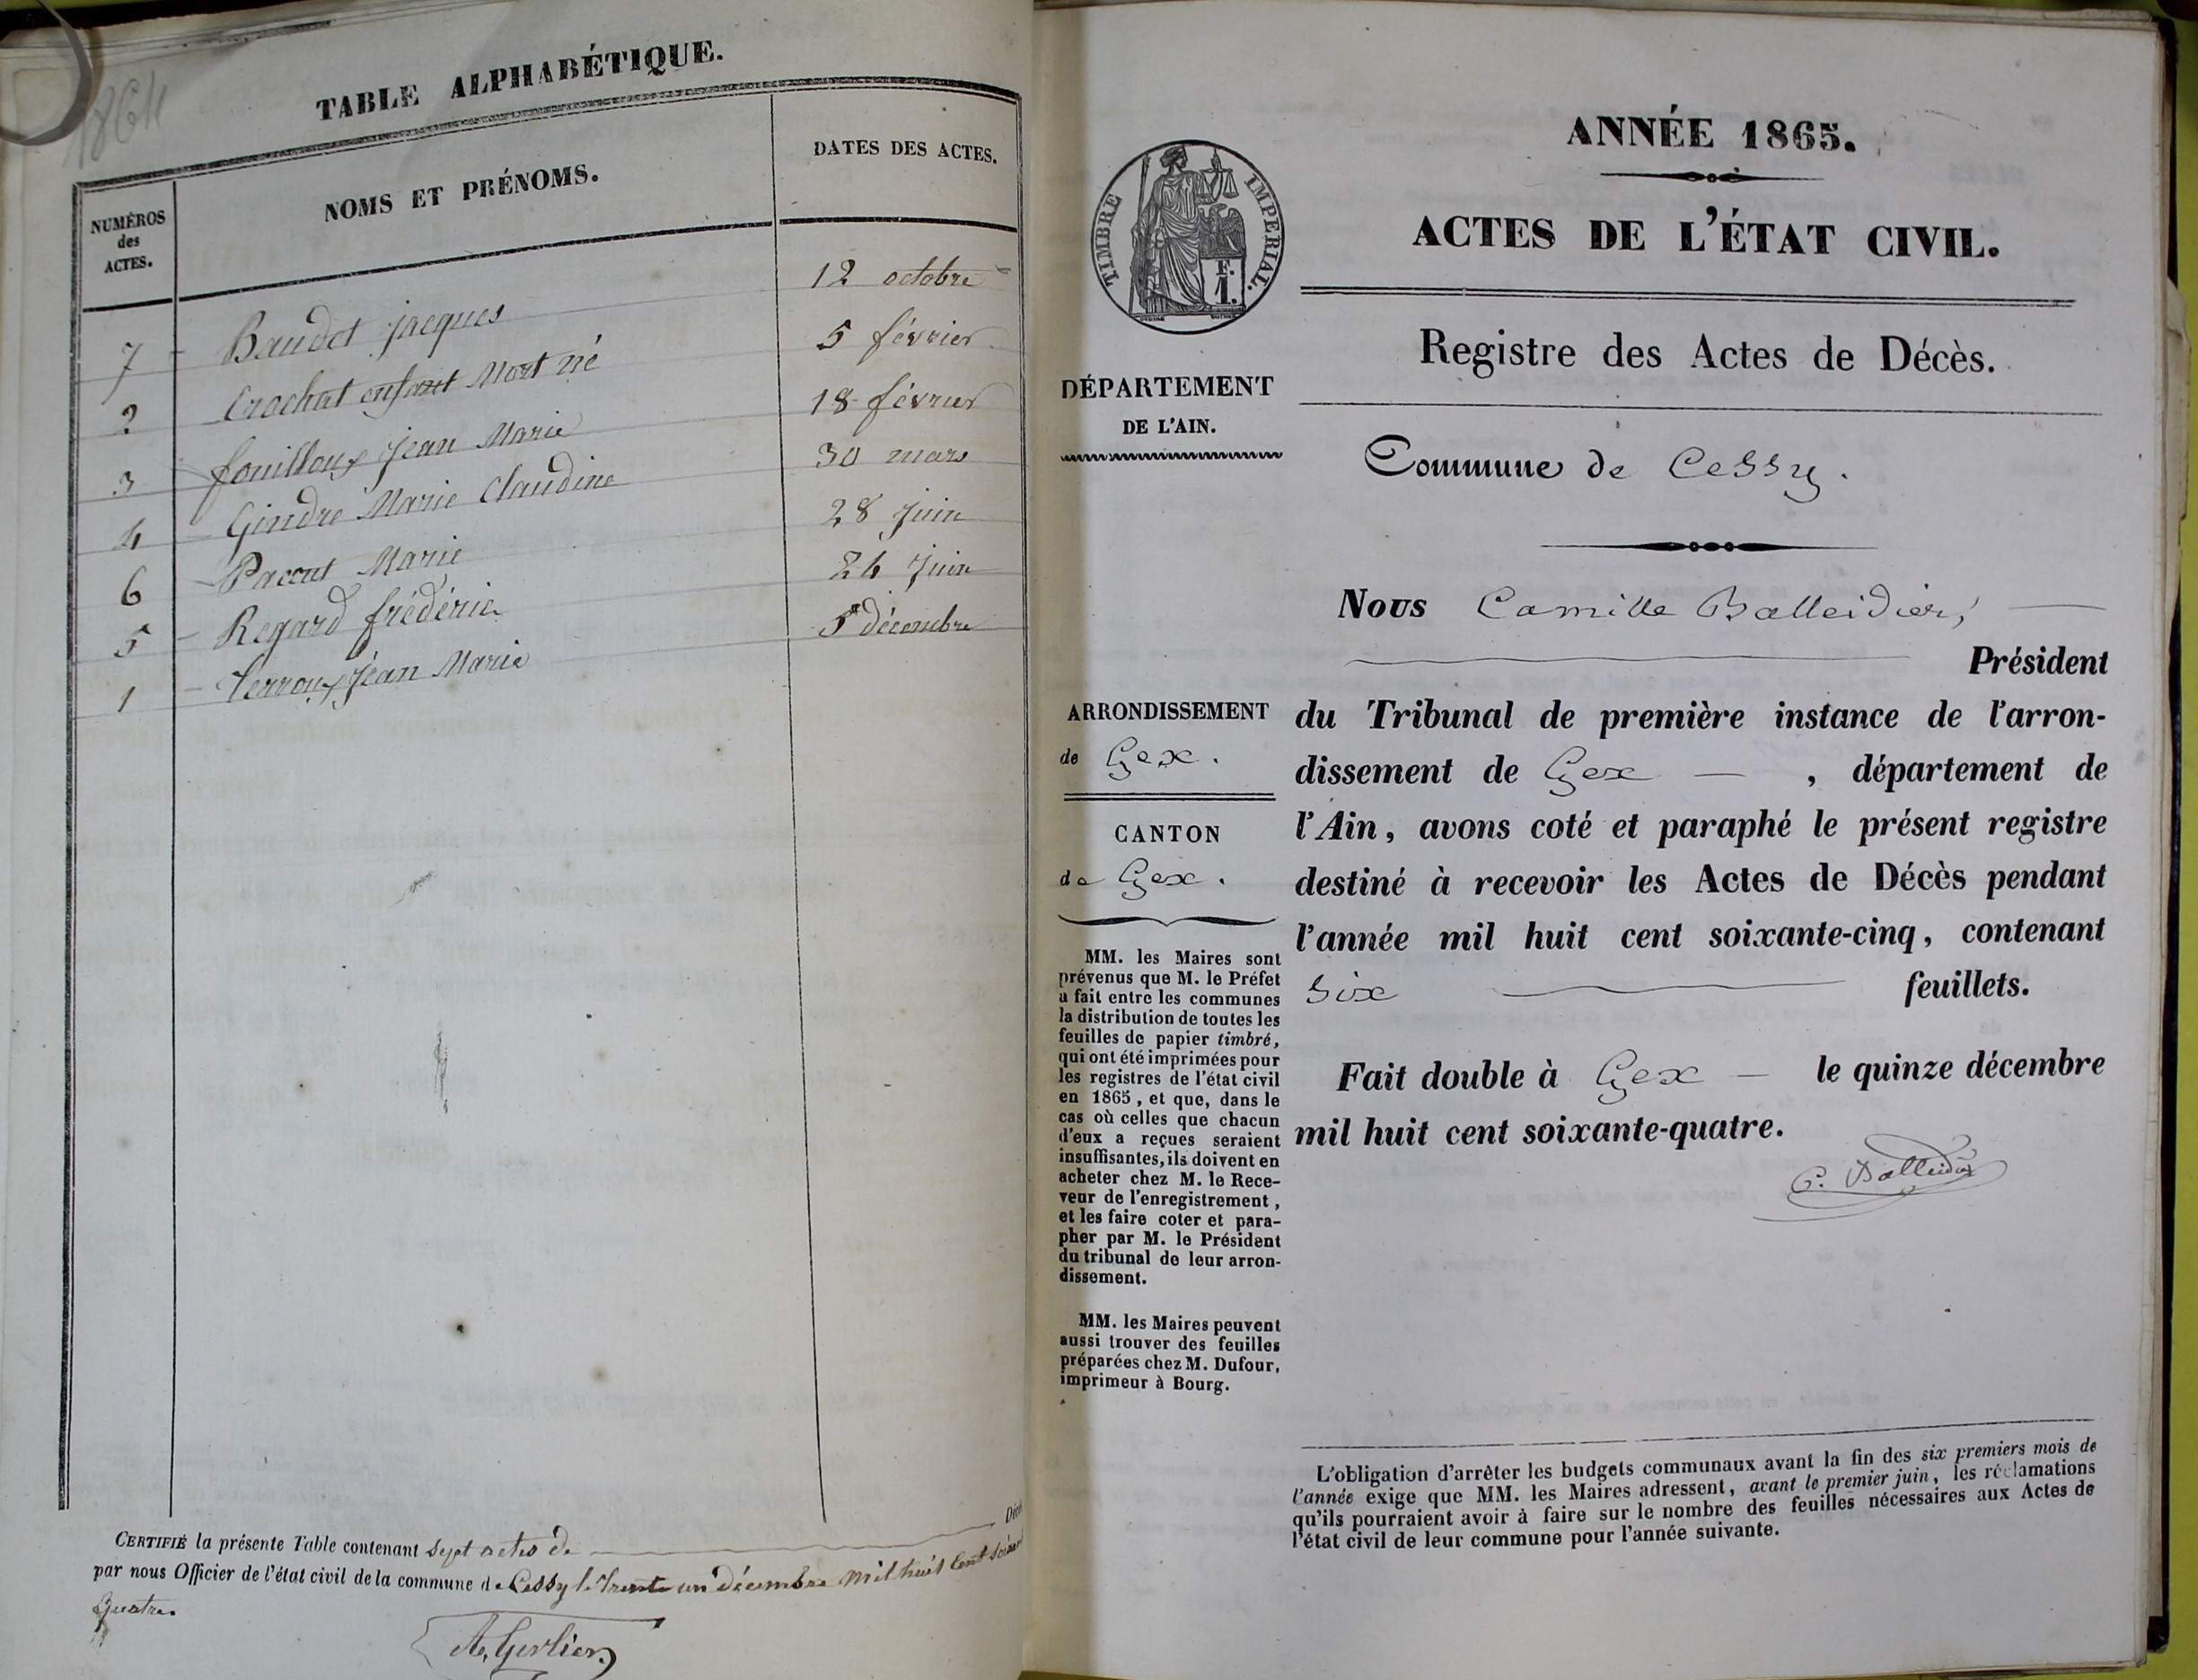 1864
TABLE ALPHABÉTIQUE.
NUMÉROS des ACTES. NOMS ET PRÉNOMS. DATES DES ACTES.
7 Baudet jacques 12 octobre
2 Crochat enfant Mort né 5 février
3 fouilloux jean Marie 18 février
4 Gindre Marie Claudine 30 mars
6 Paccut Marie 28 juin
5 Regard frédéric 26 juin
1 Verroux jean Marie 5 décembre
CERTIFIÉ la présente Table contenant sept actes de Décè
par nous Officier de l'état civil de la commune de Cessy le trente un décembre mil huit Cent soixant
Quatre.
A, Gerlier
TIMBRE IMPERIAL.
F.
1.
DÉPARTEMENT
DE L'AIN.
ARRONDISSEMENT
de Gex.
CANTON
de Gex.
MM. les Maires sont
prévenus que M. le Préfet
a fait entre les communes
la distribution de toutes les
feuilles de papier timbré,
qui ont été imprimées pour
les registres de l'état civil
en 1865, et que, dans le
cas où celles que chacun
d'eux a reçues seraient
insuffisantes, ils doivent en
acheter chez M. le Rece-
veur de l'enregistrement,
et les faire coter et para-
pher par M. le Président
du tribunal de leur arron-
dissement.
MM. les Maires peuvent
aussi trouver des feuilles
préparées chez M. Dufour,
imprimeur à Bourg.
ANNÉE 1865.
ACTES DE L'ÉTAT CIVIL.
Registre des Actes de Décès.
Commune de Cessy.
Nous Camille Balleidier,
Président
du Tribunal de première instance de l'arron-
dissement de Gex — , département de
l'Ain, avons coté et paraphé le présent registre
destiné à recevoir les Actes de Décès pendant
l'année mil huit cent soixante-cinq, contenant
six feuillets.
Fait double à Gex — le quinze décembre
mil huit cent soixante-quatre.
C. Balleidier
L'obligation d'arrêter les budgets communaux avant la fin des six premiers mois de
l'année exige que MM. les Maires adressent, avant le premier juin, les réclamations
qu'ils pourraient avoir à faire sur le nombre des feuilles nécessaires aux Actes de
l'état civil de leur commune pour l'année suivante.